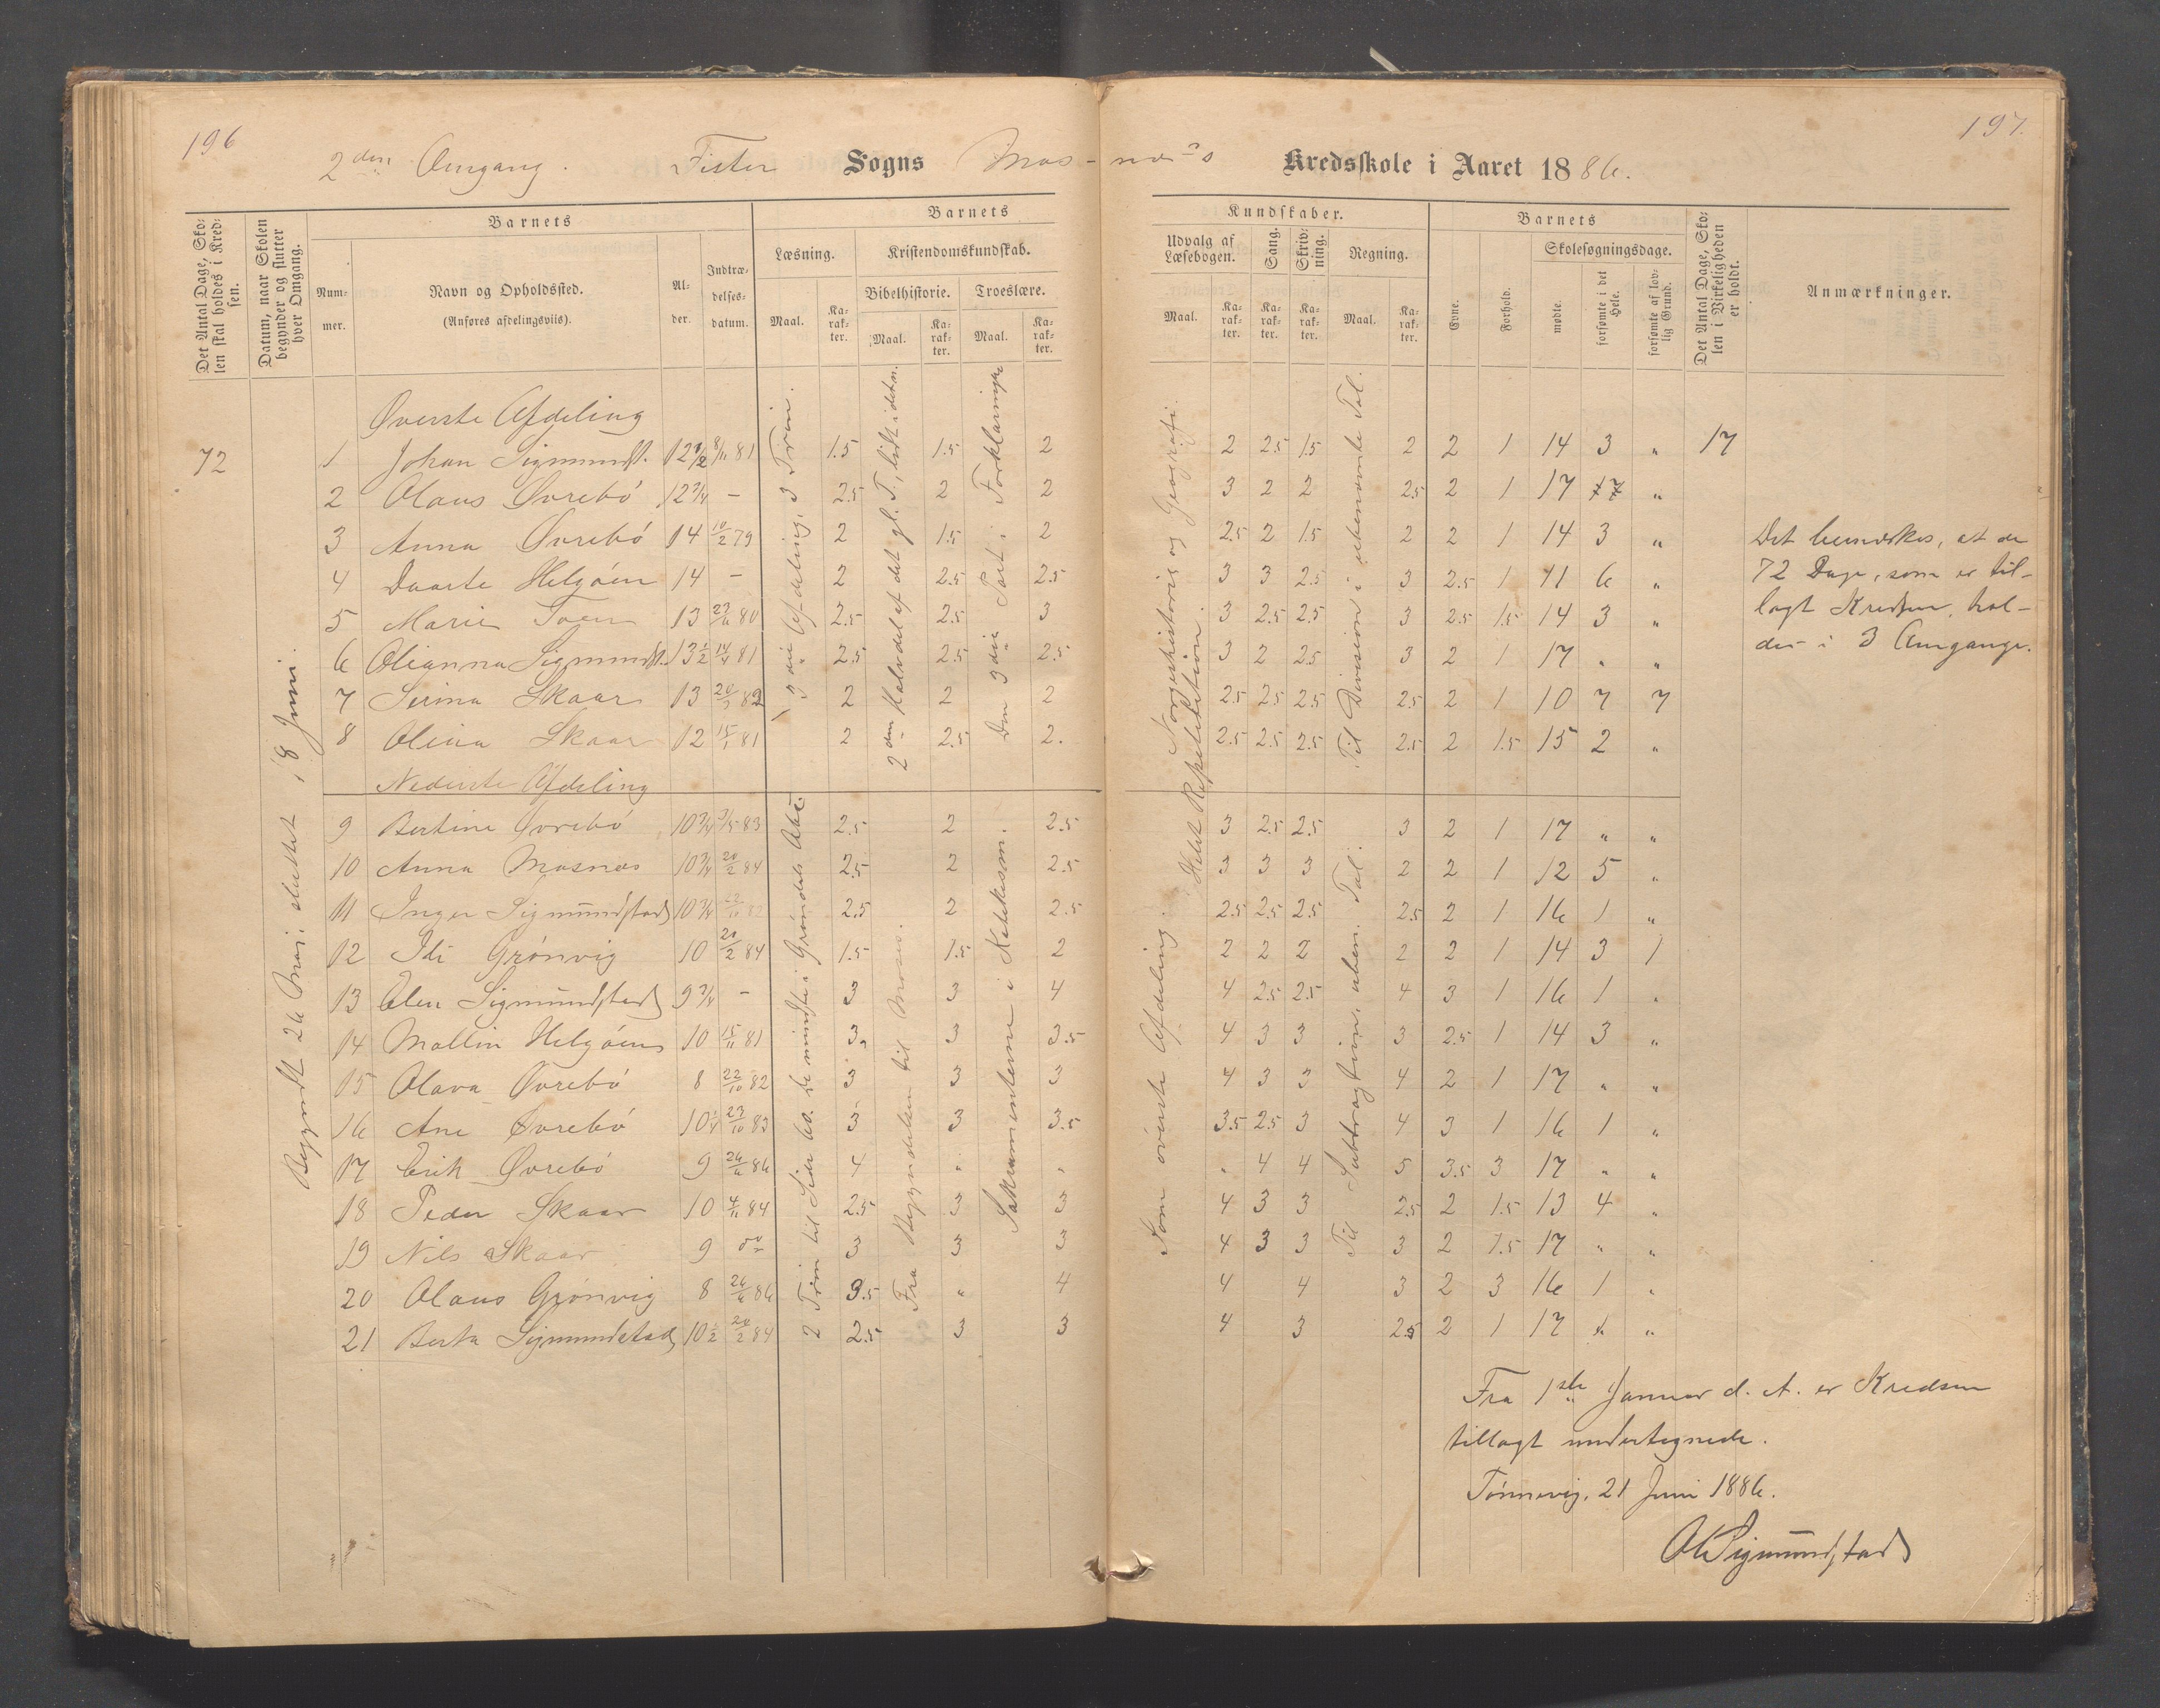 196
197.
2den Omgang. Fister Sogns Mas-næs Kredsskole i Aaret 1886.
Det Antal Dage, Skolen skal holdes i Kredsen.
Datum, naar Skolen begynder og slutter hver Omgang.
Barnets
Nummer.
Navn og Opholdssted.
(Anføres afdelingsviis).
Alder.
Indtrædelsesdatum.
Barnets
Læsning.
Maal.
Karakter.
Kristendomskundskab.
Bibelhistorie.
Maal.
Karakter.
Troeslære.
Maal.
Karakter.
Kundskaber.
Udvalg af Læsebogen.
Maal.
Karakter.
Sang.
Karakter.
Skrivning.
Karakter.
Regning.
Maal.
Karakter.
Barnets
Evne.
Forhold.
Skolesøgningsdage.
mødte
forsømte i det Hele.
forsømte af lovlig Grund.
Det Antal Dage, Skolen i Virkeligheden er holdt.
Anmærkninger.
Begyndt 26 Mai, sluttet 18 Juni.
Øverste Afdeling
72 1 Johan Sigmundst. 12 1/2 8/11 81 1.5 1.5 2 2 2.5 1.5 2 2 1 14 3 " 17
2 Olaus Øvrebö 12 3/4 - 2.5 2 2 3 2 2 2.5 2 1 17 "
3 Anna Øvrebö 14 10/2 79 2 1.5 2 2.5 2 1.5 2 2 1 14 3 "
4 Daarte Helgöen 14 - 2 2.5 2.5 3 3 2.5 3 2.5 1 11 6 "
5 Marie Toen 13 23/6 80 2.5 2.5 3 3 2.5 2.5 3 2.5 1.5 14 3 "
6 Olianna Sigmundst. 13 1/2 14/4 81 2.5 2.5 2.5 3 2 2.5 3 2 1 17 " "
7 Serina Skaar 13 20/3 82 2 2 2 2.5 2.5 2.5 2.5 2 1 10 7 7
8 Olina Skaar 12 15/1 81 2 2.5 2. 2.5 2.5 2.5 2.5 2 1.5 15 2 "
3die Afdeling, 3 Trin.
2den Halvdel af det gl. T., lidt i det n.
Den 3die Part i Forklaringen
Norgeshistorie og Geografi.
Helst Repetition.
Til Division i ubenævnte Tal.
Nederste Afdeling
9 Bertine Øvrebö 10 3/4 3/5 83 2.5 2 2.5 3 2.5 2.5 3 2 1 17 " "
10 Anna Masnæs 10 3/4 20/2 84 2.5 2 2.5 3 3 3 2 2 1 12 5 "
11 Inger Sigmundstad 10 3/4 23/10 82 2.5 2 2.5 2.5 2.5 2.5 2.5 2 1 16 1 "
12 Idi Grönvig 10 20/2 84 1.5 1.5 2 2 2 2 2 2 1 14 3 1
13 Elen Sigmundstad 9 3/4 - 3 3 4 4 2.5 2.5 4 3 1 16 1 "
14 Mallin Helgöen 10 15/11 81 3 3 3.5 4 3 3 3 2.5 1 14 3 "
15 Olava Øvrebö 8 22/10 82 3 3 3 4 3 3 4 2 1 17 " "
16 Ane Øvrebö 10 1/4 23/10 83 3 3 3.5 3.5 2.5 3 4 3 1 16 1 "
17 Erik Øvrebö 9 26/6 86 4 " " " 4 4 5 3.5 3 17 " "
18 Peder Skaar 10 4/11 84 2.5 3 3 4 3 3 2.5 2 1.5 13 4 "
19 Nils Skaar 9 do 3 3 3 4 3 3 3 2 1.5 17 " "
20 Olaus Grönvig 8 26/6 86 3.5 " 4 4 4 3 2 3 16 1 "
21 Berta Sigmundstad 10 1/2 20/2 84 2.5 3 3 4 3 2.5 2 1 17 " "
2 Trin til Side 60. De mindste i Gröndals Abc.
Fra Begyndelsen til Moses.
Sakramenterne i Katekism.
Som överste Afdeling.
Til Subtragtion, uben. Tal.
Det bemærkes, at de
72 Dage, som er til-
lagt Kredsen, hol-
des i 3 Omgange.
Fra 1ste Januar d. A. er Kredsen
tillagt undertegnede.
Tönnevig, 21 Juni 1886.
O Sigmundstad